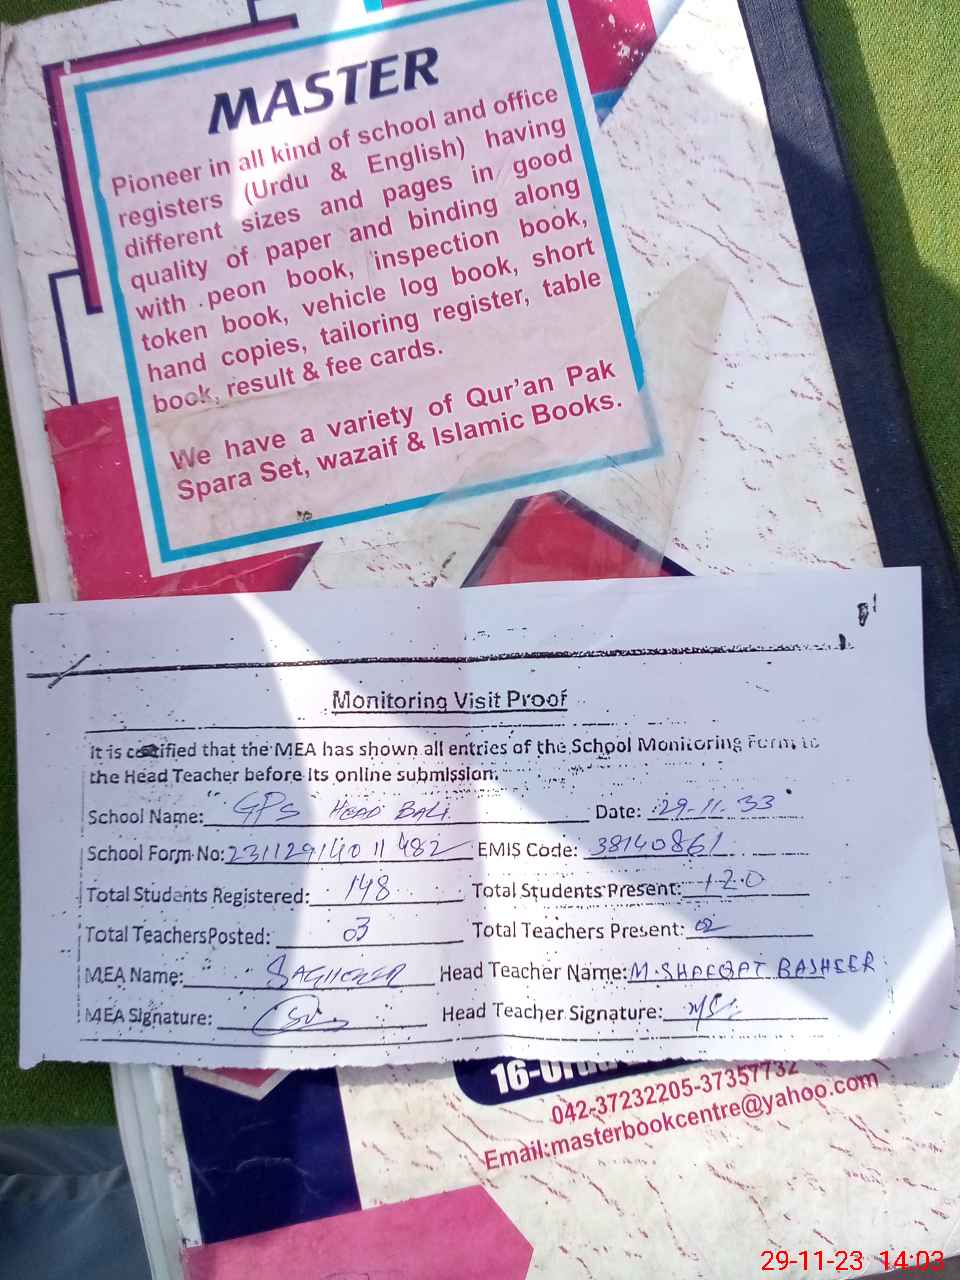 MASTER
Pioneer in all kind of school and office
registers (Urdu & English) having
different sizes and pages in good
quality of paper and binding along
with peon book, inspection book,
token book, vehicle log book, short
hand copies, tailoring register, table
book, result & fee cards.
We have a variety of Qur'an Pak
Spara Set, wazaif & Islamic Books.
Monitoring Visit Proof
It is certified that the MEA has shown all entries of the School Monitoring Form to
the Head Teacher before its online submission.
School Name: GPS HEAD BALI Date: 29-11-33
School Form No: 231129140 11 482 EMIS Code: 38140861
Total Students Registered: 148 Total Students Present: 120
Total Teachers Posted: 03 Total Teachers Present: 02
MEA Name: Head Teacher Name: M. SHAFQAT BASHEER
MEA Signature: Head Teacher Signature:
042-37232205-37357732
Email:masterbookcentre@yahoo.com
29-11-23 14:03